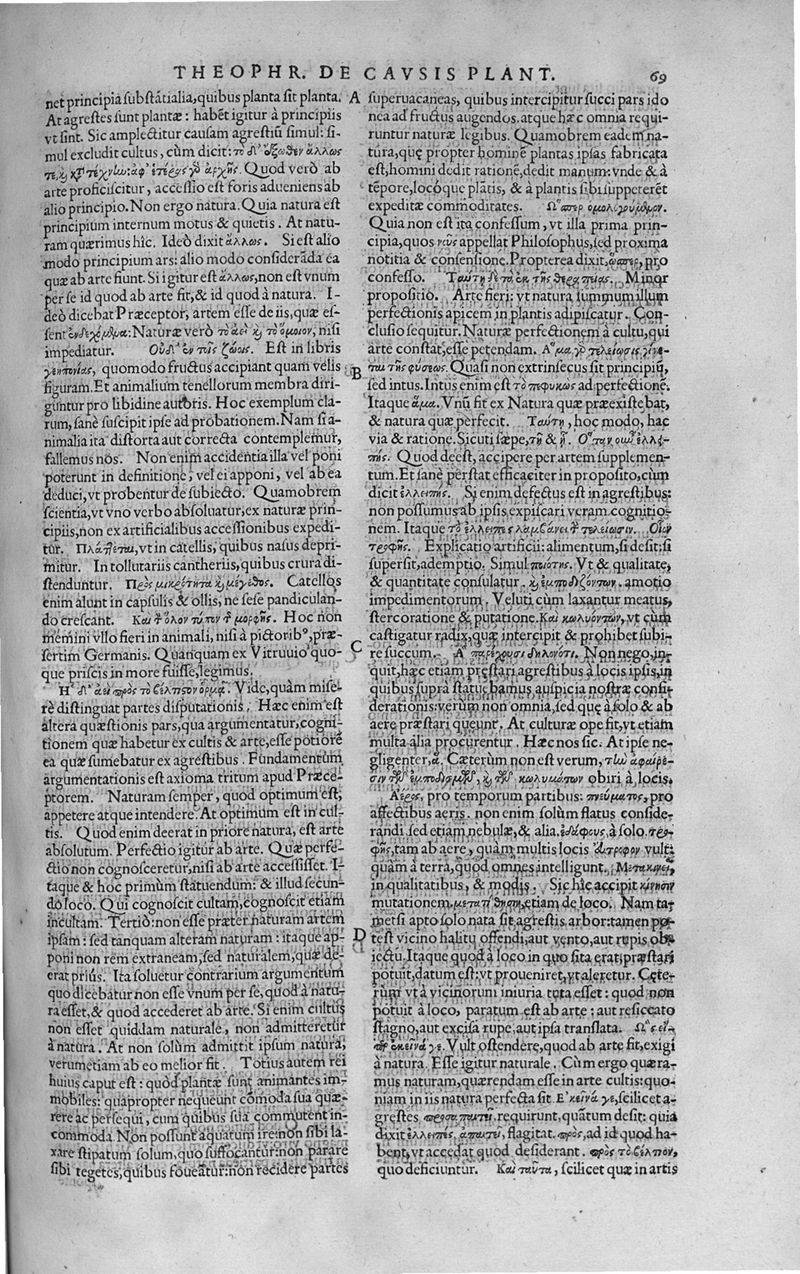 THEOPHR. DE CAVSIS PLANT. 69
net principia substãtialia, quibus planta sit planta.
At agrestes sunt plantæ: habẽt igitur à principiis
vt sint. Sic amplectitur causam agrestiũ simul: si-
mul excludit cultus, cùm dicit: τὸ δ' ἔξωθεν ἄλλως
Quod verò ab
arte proficiscitur, accessio est foris adueniens ab
alio principio. Non ergo natura. Quia natura est
principium internum motus & quietis. At natu-
ram quærimus hîc. Ideò dixit ἄλλως. Si est alio
modo principium ars: alio modo considerãda ea
quæ ab arte fiunt. Si igitur est ἄλλως, non est vnum
per se id quod ab arte fit, & id quod à natura. I-
deò dicebat Præceptor, artem esse de iis, quæ es-
sent ἐνδεχόμενα: Naturæ verò τὸ ἀεὶ ἢ τὸ ὅμοιον, nisi
impediatur. Οὐδ' ἐν τοῖς ζώοις. Est in libris
γεηπονίας, quomodo fructus accipiant quam velis
figuram. Et animalium tenellorum membra diri-
guntur pro libidine autoris. Hoc exemplum cla-
rum, sanè suscipit ipse ad probationem. Nam si a-
nimalia ita distorta aut correcta contemplemur,
fallemus nos. Non enim accidentia illa vel poni
poterunt in definitione, vel ei apponi, vel ab ea
deduci, vt probentur de subiecto. Quamobrem
scientia, vt vno verbo absoluatur, ex naturæ prin-
cipiis, non ex artificialibus accessionibus expedi-
tur. Πλάττεται, vt in catellis, quibus nasus depri-
mitur. In tollutariis cantheriis, quibus crura di-
stenduntur. Πρὸς μικρότητα ἢ μέγεθος. Catellos
enim alunt in capsulis & ollis, ne sese pandiculan-
do crescant. Καὶ τ ὅλον τύπον τ μορφῆς. Hoc non
memini vllo fieri in animali, nisi à pictorib⁹, præ-
sertim Germanis. Quanquam ex Vitruuio quo-
que priscis in more fuisse, legimus.
Η' δ' ἀεὶ πρὸς τὸ βέλτιστον ὁρμᾷ. Vide, quàm mise-
rè distinguat partes disputationis. Hæc enim est
altera quæstionis pars, qua argumentatur, cogni-
tionem quæ habetur ex cultis & arte, esse potiorē
ea quæ sumebatur ex agrestibus. Fundamentum
argumentationis est axioma tritum apud Præce-
ptorem. Naturam semper, quod optimum est,
appetere atque intendere. At optimum est in cul-
tis. Quod enim deerat in priore natura, est arte
absolutum. Perfectio igitur ab arte. Quæ perfe-
ctio non cognosceretur, nisi ab arte accessisset. I-
taque & hoc primùm statuendum: & illud secun-
do loco. Qui cognoscit cultam, cognoscit etiam
incultam. Tertiò: non esse præter naturam artem
ipsam: sed tanquam alteram naturam: itaque ap-
poni non rem extraneam, sed naturalem, quæ de-
erat priùs. Ita soluetur contrarium argumentum
quo dicebatur non esse vnum per se, quod à natu-
ra esset, & quod accederet ab arte. Si enim cultus
non esset quiddam naturale, non admitteretur
à natura. At non solùm admittit ipsum natura,
verumetiam ab eo melior fit. Totius autem rei
huius caput est: quòd plantæ sunt animantes im-
mobiles: quapropter nequeunt cõmoda sua quæ-
rere ac persequi, cum quibus sua commutent in-
commoda. Non possunt aquatum ire: non sibi la-
xare stipatum solum, quo suffocantur: non parare
sibi tegetes, quibus foueātur: non recidere partes
A superuacaneas, quibus intercipitur succi pars ido
nea ad fructus augendos. atque hæc omnia requi-
runtur naturæ legibus. Quamobrem eadem na-
tura, quę propter hominē plantas ipsas fabricata
est, homini dedit rationē, dedit manum: vnde & à
tēpore, locóque plātis, & à plantis sibi suppeteret
expeditæ commoditates. Ω῞σπερ ὁμολογούμενον.
Quia non est ita confessum, vt illa prima prin-
cipia, quos νοῦς appellat Philosophus, sed proxima
notitia & consensione. Propterea dixit, ὥσπερ, pro
confesso. Ταύτη δὲ τὰ ἐκ τῆς θεραπείας. Minor
propositio. Arte fieri: vt natura summum illum
perfectionis apicem in plantis adipiscatur. Con-
clusio sequitur. Naturæ perfectionem à cultu, qui
arte constat, esse petendam. Α῞μα γὸ τελείωσις γίνε-
B ται τῆς φύσεως. Quasi non extrinsecus sit principiũ,
sed intus. Intùs enim est τὸ πεφυκὼς ad perfectionē.
Itaque ἅμα. Vnũ fit ex Natura quæ præexistebat,
& natura quæ perfecit. Ταύτη, hoc modo, hac
via & ratione. Sicuti sæpe, τῇ & ᾗ. Ο῞ταν οὖν ἐλλι-
πής. Quod deest, accipere per artem supplemen-
tum. Et sanè perstat efficaciter in proposito, cùm
dicit ἐλλειπής. Si enim defectus est in agrestibus:
non possumus ab ipsis expiscari veram cognitio-
nem. Itaque τὸ ἐλλειπὲς λαμβάνει τ τελείωσιν. Οἷον
τροφῆς. Explicatio artificii: alimentum, si desit: si
superfit, ademptio. Simul ποιότης. Vt & qualitate,
& quantitate consulatur. ἢ ἐμποδιζόντων. amotio
impedimentorum. Veluti cùm laxantur meatus,
stercoratione & putatione. Καὶ κωλυόντων, vt cùm
castigatur radix, quæ intercipit & prohibet subi-
C re succum. Α῝ παρέχουσι δηλονότι. Non nego, in-
quit, hæc etiam præstari agrestibus à locis ipsis, in
quibus supra statuebamus auspicia nostræ consi-
derationis: verùm non omnia, sed quę à solo & ab
aere præstari queunt. At culturæ ope fit, vt etiam
multa alia procurentur. Hæc nos sic. At ipse ne-
gligenter, ἃ. Cæterùm non est verum, τὴν ἀφαίρε-
σιν τῶν ἐμποδισμῶν, ἢ τῶν κωλυμάτων obiri à locis.
Α᾿έρος, pro temporum partibus: πνεύματος, pro
affectibus aeris. non enim solùm flatus conside-
randi. sed etiam nebulæ, & alia. ἐδάφους à solo. τρο-
φῆς, tam ab aere, quàm multis locis vulti
quàm à terra, quod omnes intelligunt. Μετακινεῖ,
in qualitatibus, & modis. Sic hic accipit κίνησιν
mutationem. μετατίθησιν, etiam de loco. Nam ta-
metsi apto solo nata sit agrestis arbor: tamen po-
D test vicino halitu offendi, aut vento, aut rupis ob-
iectu. Itaque quod à loco in quo sita erat, præstari
potuit, datum est: vt proueniret, vt aleretur. Cęte-
rùm vt à vicinorum iniuria tuta esset: quod non
potuit à loco, paratum est ab arte: aut resiccato
stagno, aut excisa rupe, aut ipsa translata. Ω῞ς εἴ-
περ ἐκεῖνά γε. Vult ostendere, quod ab arte fit, exigi
à natura. Esse igitur naturale. Cùm ergo quæra-
mus naturam, quærendam esse in arte cultis: quo-
niam in iis natura perfecta sit. Ε᾿κεῖνά γε, scilicet a-
grestes προσαπαιτεῖ, requirunt, quãtum desit: quia
dixit ἐλλειπές. ἀπαιτεῖ, flagitat. πρὸς, ad id quod ha-
bent, vt accedat quod desiderant. πρὸς τὸ βέλτιον,
quo deficiuntur. Καὶ ταῦτα, scilicet quæ in artis